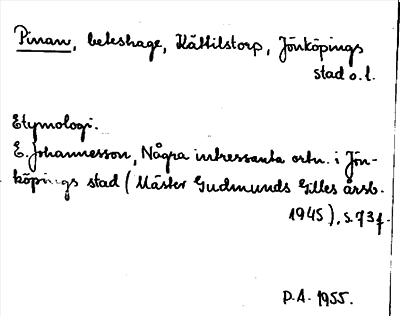 Pinan, beteshage, Kättilstorp, Jönköpings
stad o. l.
Etymologi.
E. Johannesson, Några intressanta ortn. i Jön-
köpings stad (Mäster Gudmunds Gilles årsb.
1945), s. 73 f.
D.A. 1955.